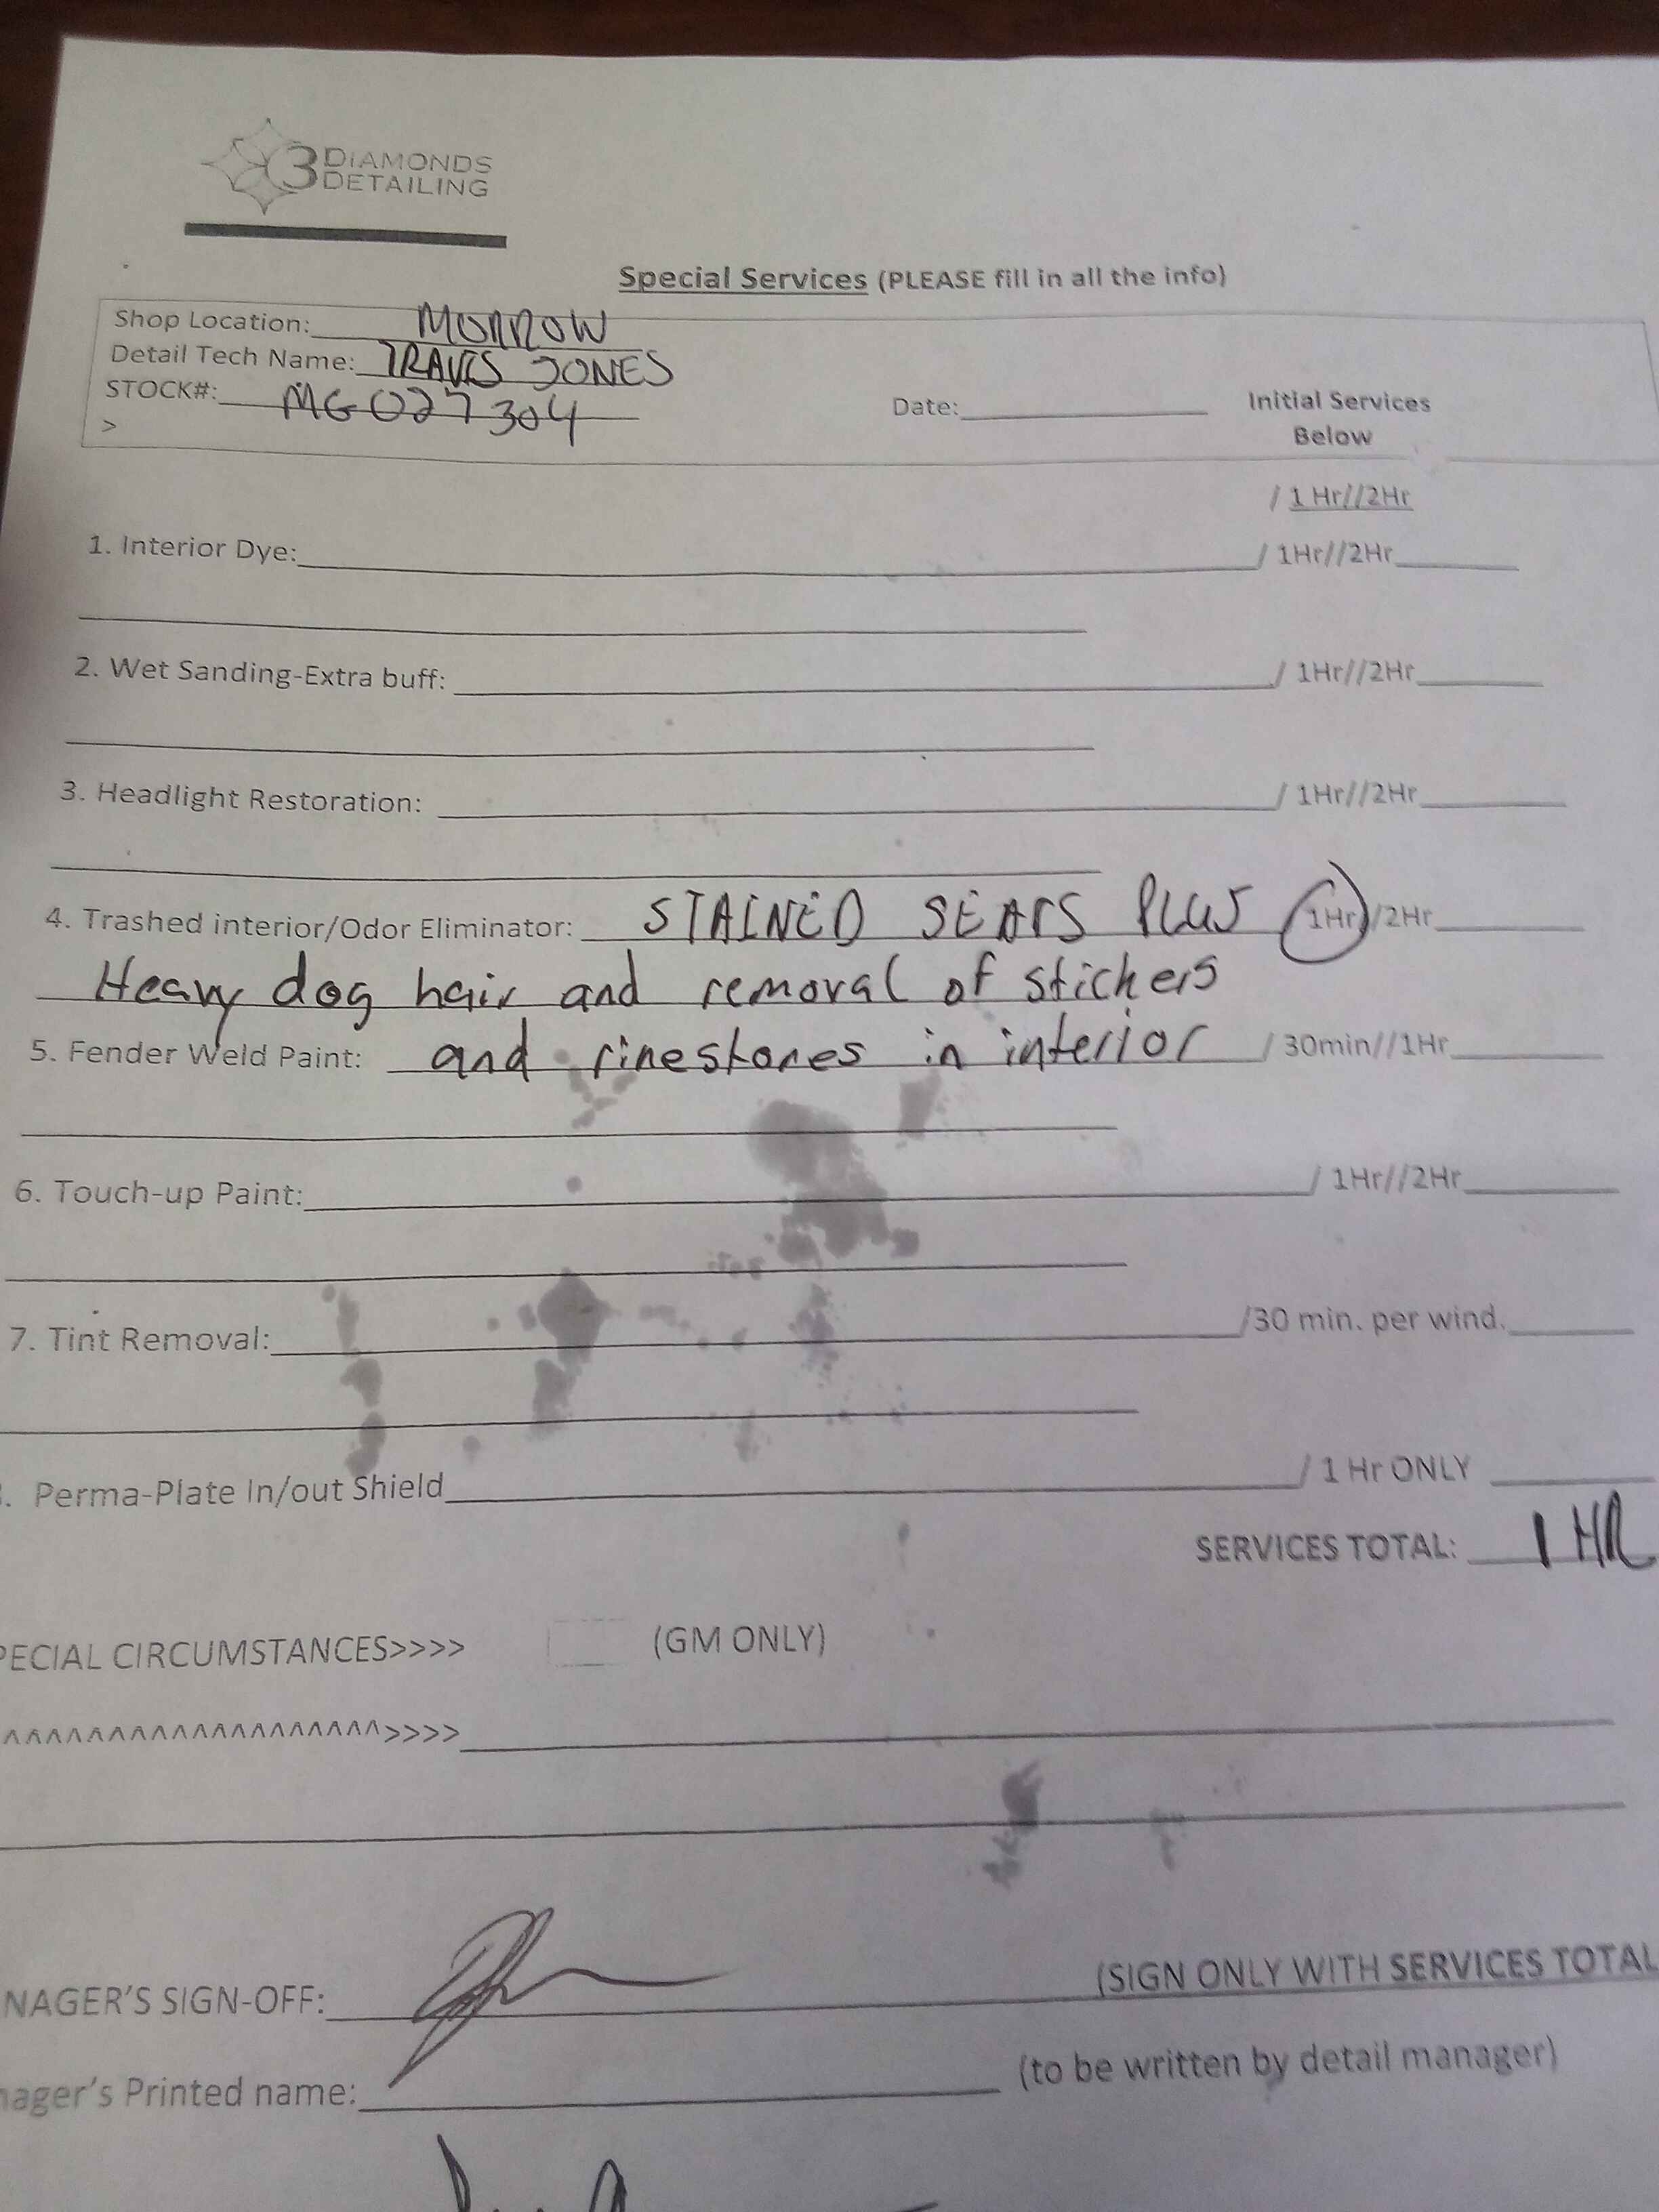 3 DIAMONDS
DETAILING
Special Services (PLEASE fill in all the info)
Shop Location: MORROW
Detail Tech Name: TRAVIS JONES
STOCK#: MG027304
Date:
Initial Services
Below
>
/ 1 Hr//2Hr
1. Interior Dye: / 1Hr//2Hr
2. Wet Sanding-Extra buff: / 1Hr//2Hr
3. Headlight Restoration: / 1Hr//2Hr
4. Trashed interior/Odor Eliminator: STAINED SEATS PLUS 1Hr//2Hr
Heavy dog hair and removal of stickers
5. Fender Weld Paint: and rinestones in interior / 30min//1Hr
6. Touch-up Paint: / 1Hr//2Hr
7. Tint Removal: /30 min. per wind.
. Perma-Plate In/out Shield / 1 Hr ONLY
SERVICES TOTAL: 1 HR
PECIAL CIRCUMSTANCES>>>> (GM ONLY)
^^^^^^^^^^^^^^^^^^^>>>>
NAGER'S SIGN-OFF: (SIGN ONLY WITH SERVICES TOTAL
nager's Printed name: (to be written by detail manager)